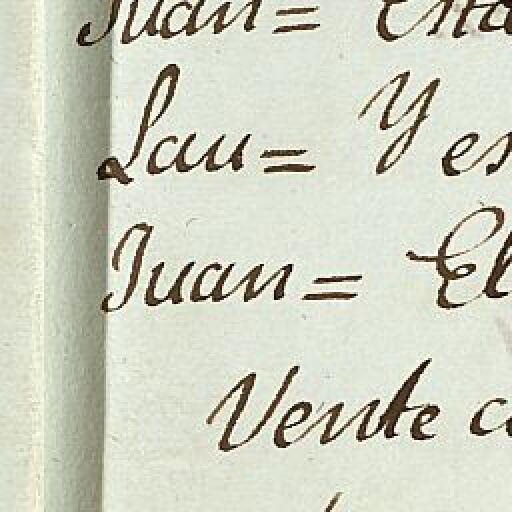 Juan= Esta
Lau= Y es
Juan= El
Vente co